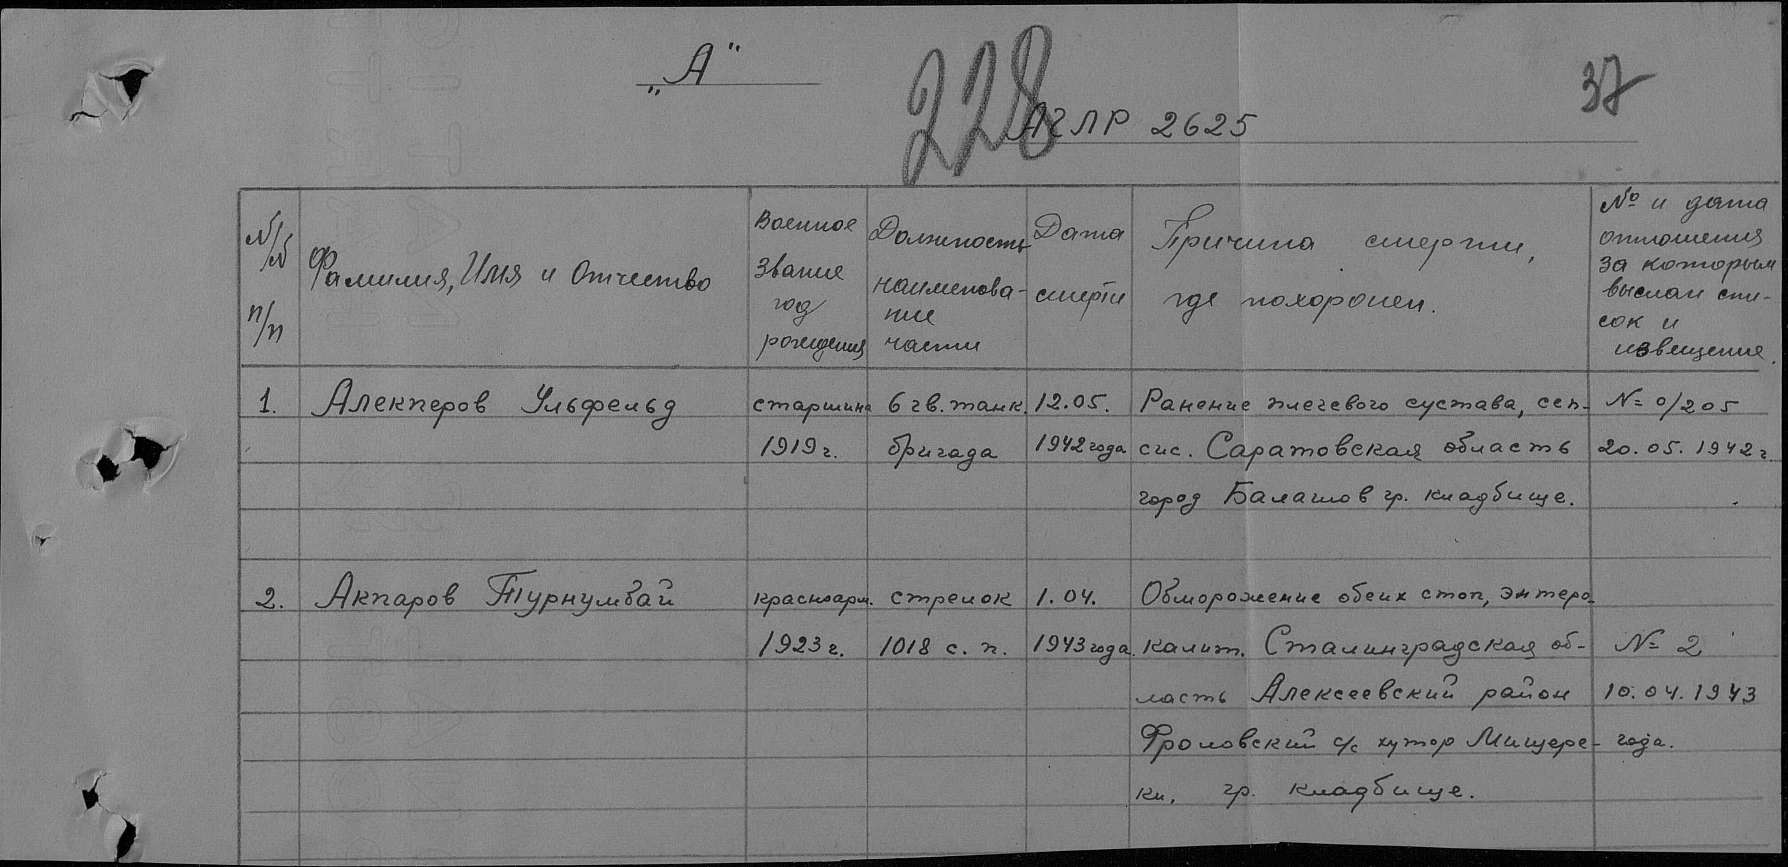 „А"
228
37
АГЛР 2625
№/№ п/п
Фамилия, Имя и Отчество
Военное звание год рождения
Должность наименова-ние части
Дата смерти
Причина смерти, где похоронен.
№ и дата отношения за которым выслан спи-сок и извещение.
1. Алекперов Ульфельд старшина 6 гв. танк. 12.05. Ранение плечевого сустава, сеп- № 0/205
1919 г. бригада 1942 года сис. Саратовская область 20.05.1942 г.
город Балашов гр. кладбище.
2. Акпаров Турнумбай красноарм. стрелок 1.04. Обморожение обеих стоп, энтеро-
1923 г. 1018 с. п. 1943 года. калит. Сталинградская об- № 2
ласть Алексеевский район 10.04.1943
Фроловский с/с хутор Мищере- года.
ки, гр. кладбище.